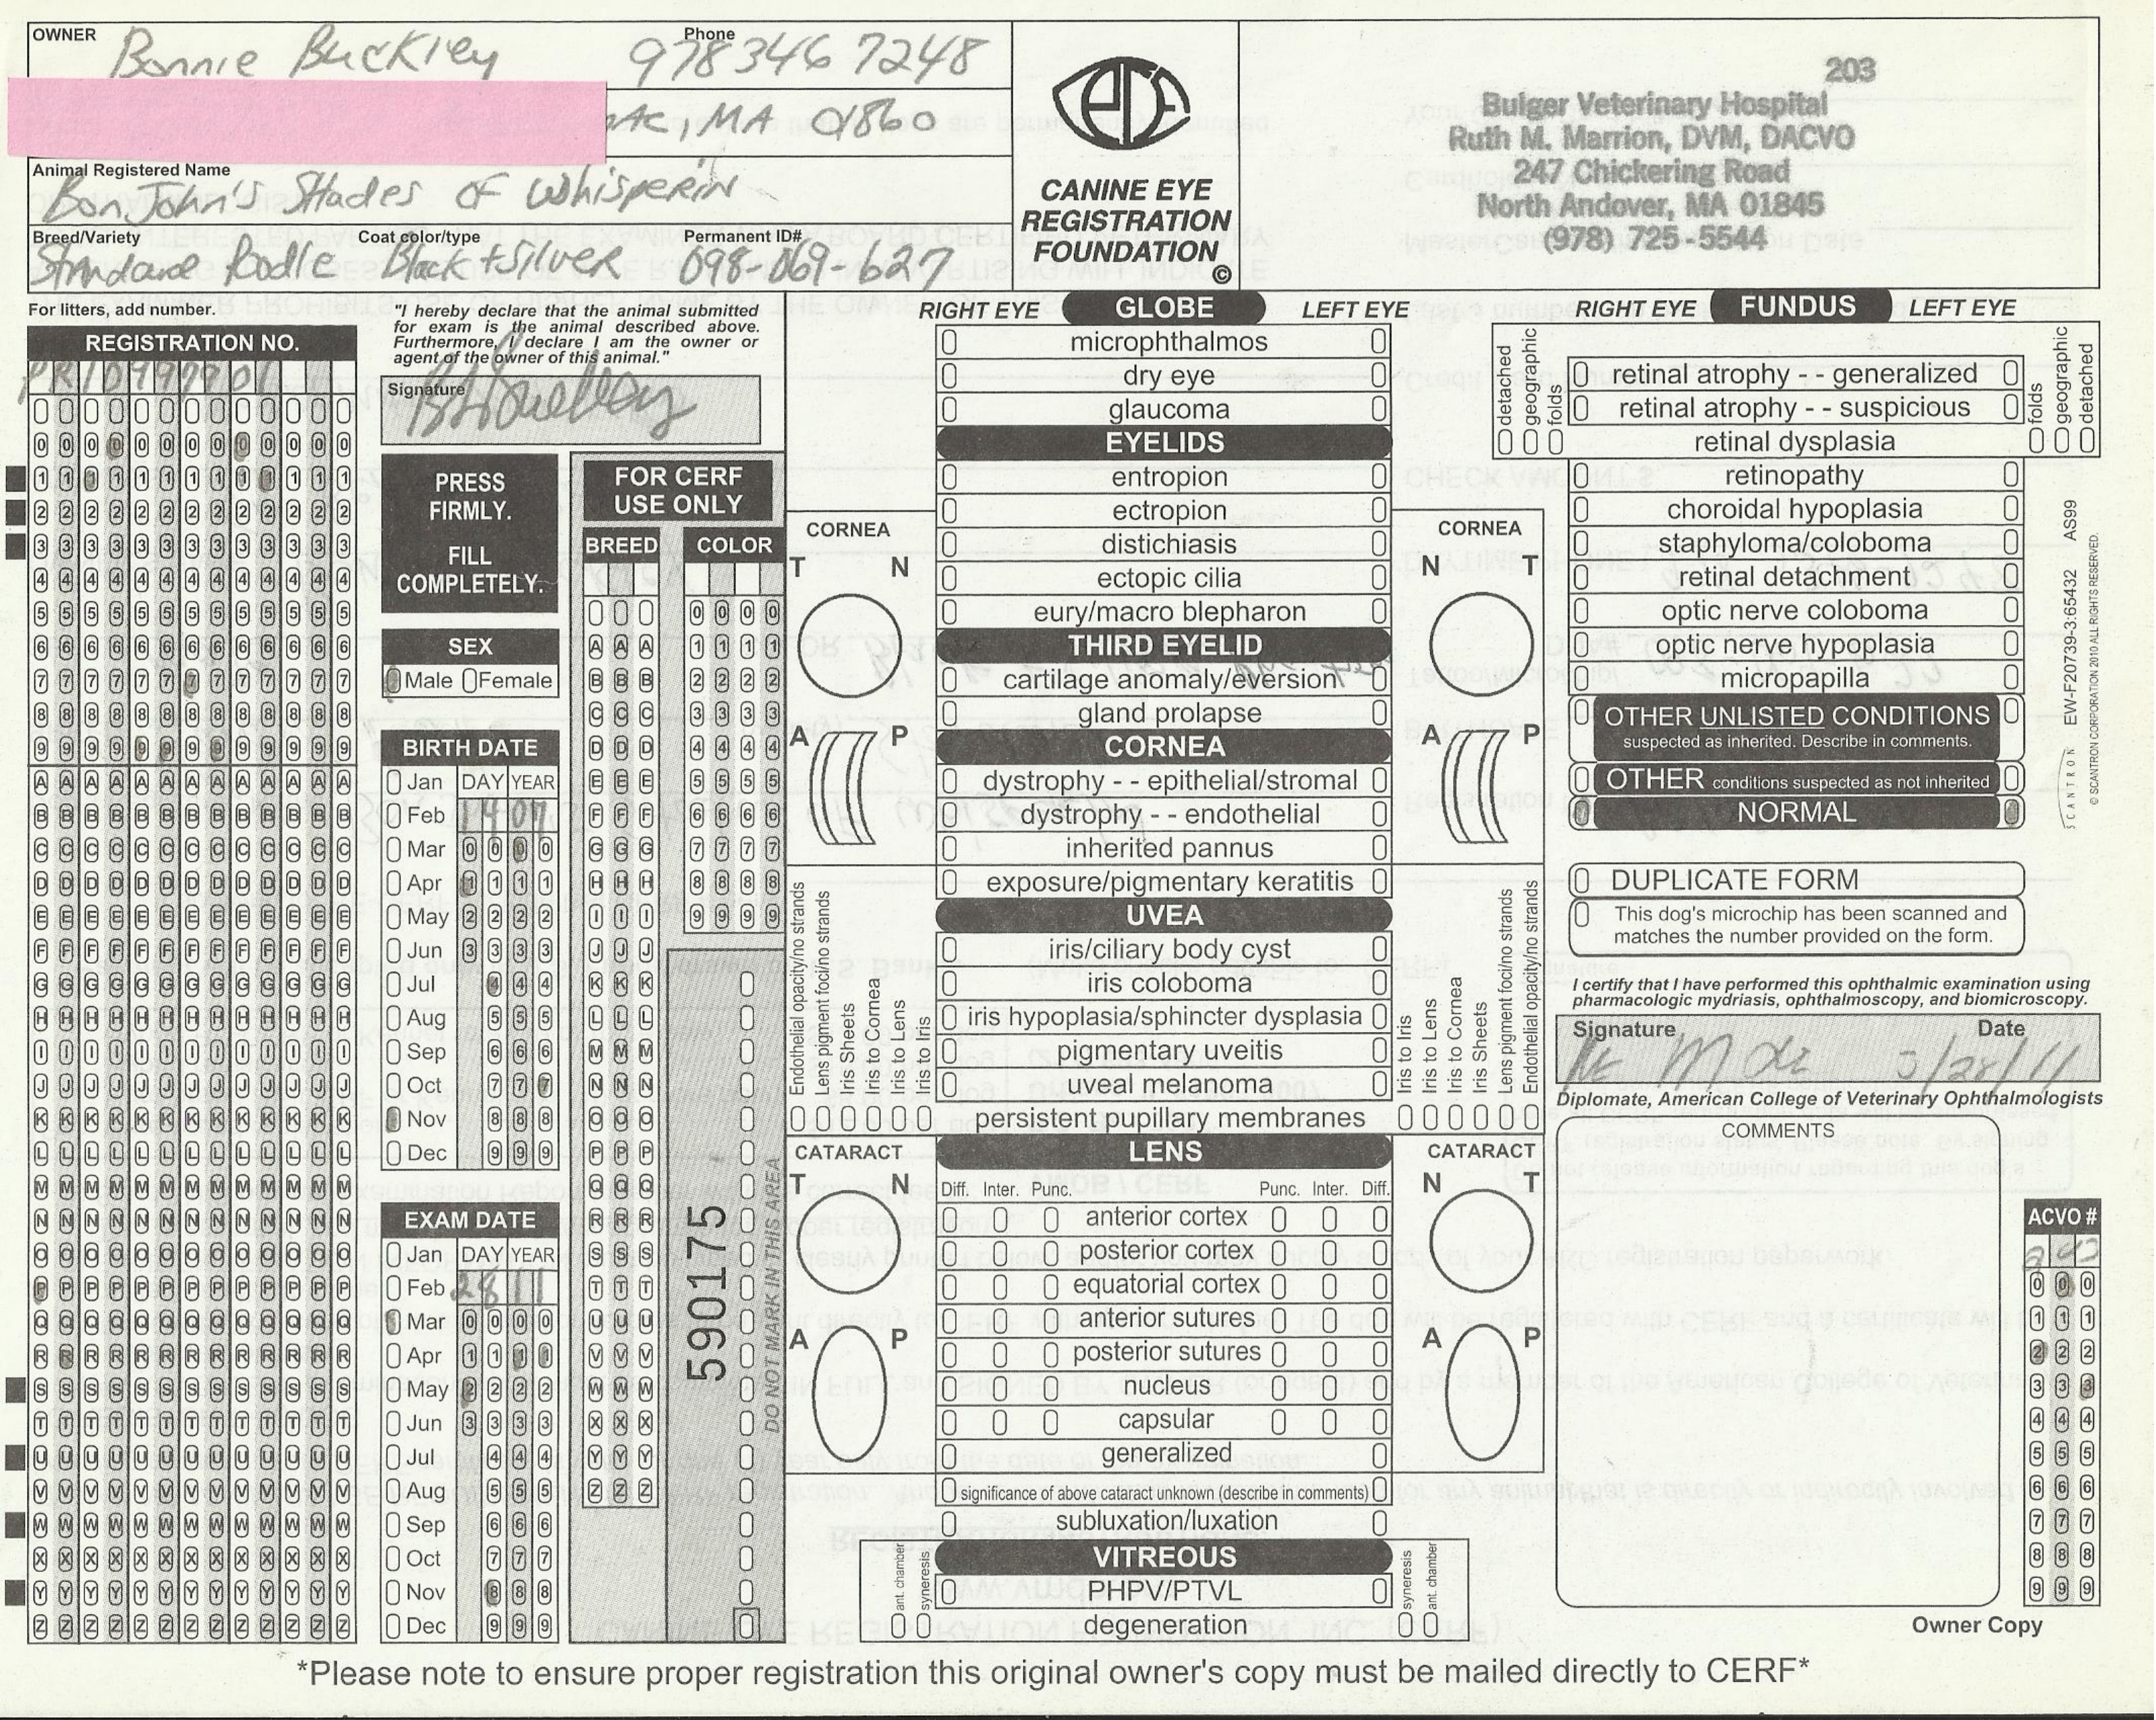 OWNER
Bonnie Buckley
Phone
978 346 7248
MA 01860
Animal Registered Name
BonJohn's Shades Of Whisperin
Breed/Variety
Standard Poodle
Coat color/type
Black + Silver
Permanent ID#
098-069-627
CANINE EYE
REGISTRATION
FOUNDATION
©
203
Bulger Veterinary Hospital
Ruth M. Marrion, DVM, DACVO
247 Chickering Road
North Andover, MA 01845
(978) 725-5544
For litters, add number.
REGISTRATION NO.
PR10997901
"I hereby declare that the animal submitted
for exam is the animal described above.
Furthermore, I declare I am the owner or
agent of the owner of this animal."
Signature
PRESS
FIRMLY.
FILL
COMPLETELY.
SEX
Male Female
BIRTH DATE
DAY YEAR
14 07
Jan
Feb
Mar
Apr
May
Jun
Jul
Aug
Sep
Oct
Nov
Dec
EXAM DATE
DAY YEAR
28 11
Jan
Feb
Mar
Apr
May
Jun
Jul
Aug
Sep
Oct
Nov
Dec
FOR CERF
USE ONLY
BREED COLOR
590175
DO NOT MARK IN THIS AREA
RIGHT EYE GLOBE LEFT EYE
microphthalmos
dry eye
glaucoma
EYELIDS
entropion
ectropion
distichiasis
ectopic cilia
eury/macro blepharon
THIRD EYELID
cartilage anomaly/eversion
gland prolapse
CORNEA
dystrophy - - epithelial/stromal
dystrophy - - endothelial
inherited pannus
exposure/pigmentary keratitis
UVEA
iris/ciliary body cyst
iris coloboma
iris hypoplasia/sphincter dysplasia
pigmentary uveitis
uveal melanoma
persistent pupillary membranes
CORNEA
T N
A P
Endothelial opacity/no strands
Lens pigment foci/no strands
Iris Sheets
Iris to Cornea
Iris to Lens
Iris to Iris
CORNEA
N T
A P
Iris to Iris
Iris to Lens
Iris to Cornea
Iris Sheets
Lens pigment foci/no strands
Endothelial opacity/no strands
CATARACT
T N
A P
LENS
Diff. Inter. Punc. Punc. Inter. Diff.
anterior cortex
posterior cortex
equatorial cortex
anterior sutures
posterior sutures
nucleus
capsular
generalized
significance of above cataract unknown (describe in comments)
subluxation/luxation
CATARACT
N T
A P
VITREOUS
PHPV/PTVL
degeneration
ant. chamber
syneresis
syneresis
ant. chamber
RIGHT EYE FUNDUS LEFT EYE
detached
geographic
folds
retinal atrophy - - generalized
retinal atrophy - - suspicious
retinal dysplasia
folds
geographic
detached
retinopathy
choroidal hypoplasia
staphyloma/coloboma
retinal detachment
optic nerve coloboma
optic nerve hypoplasia
micropapilla
OTHER UNLISTED CONDITIONS
suspected as inherited. Describe in comments.
OTHER conditions suspected as not inherited
NORMAL
DUPLICATE FORM
This dog's microchip has been scanned and
matches the number provided on the form.
I certify that I have performed this ophthalmic examination using
pharmacologic mydriasis, ophthalmoscopy, and biomicroscopy.
Signature Date
3/28/11
Diplomate, American College of Veterinary Ophthalmologists
COMMENTS
ACVO #
203
Owner Copy
SCANTRON EW-F20739-3:65432 AS99
© SCANTRON CORPORATION 2010 ALL RIGHTS RESERVED.
*Please note to ensure proper registration this original owner's copy must be mailed directly to CERF*